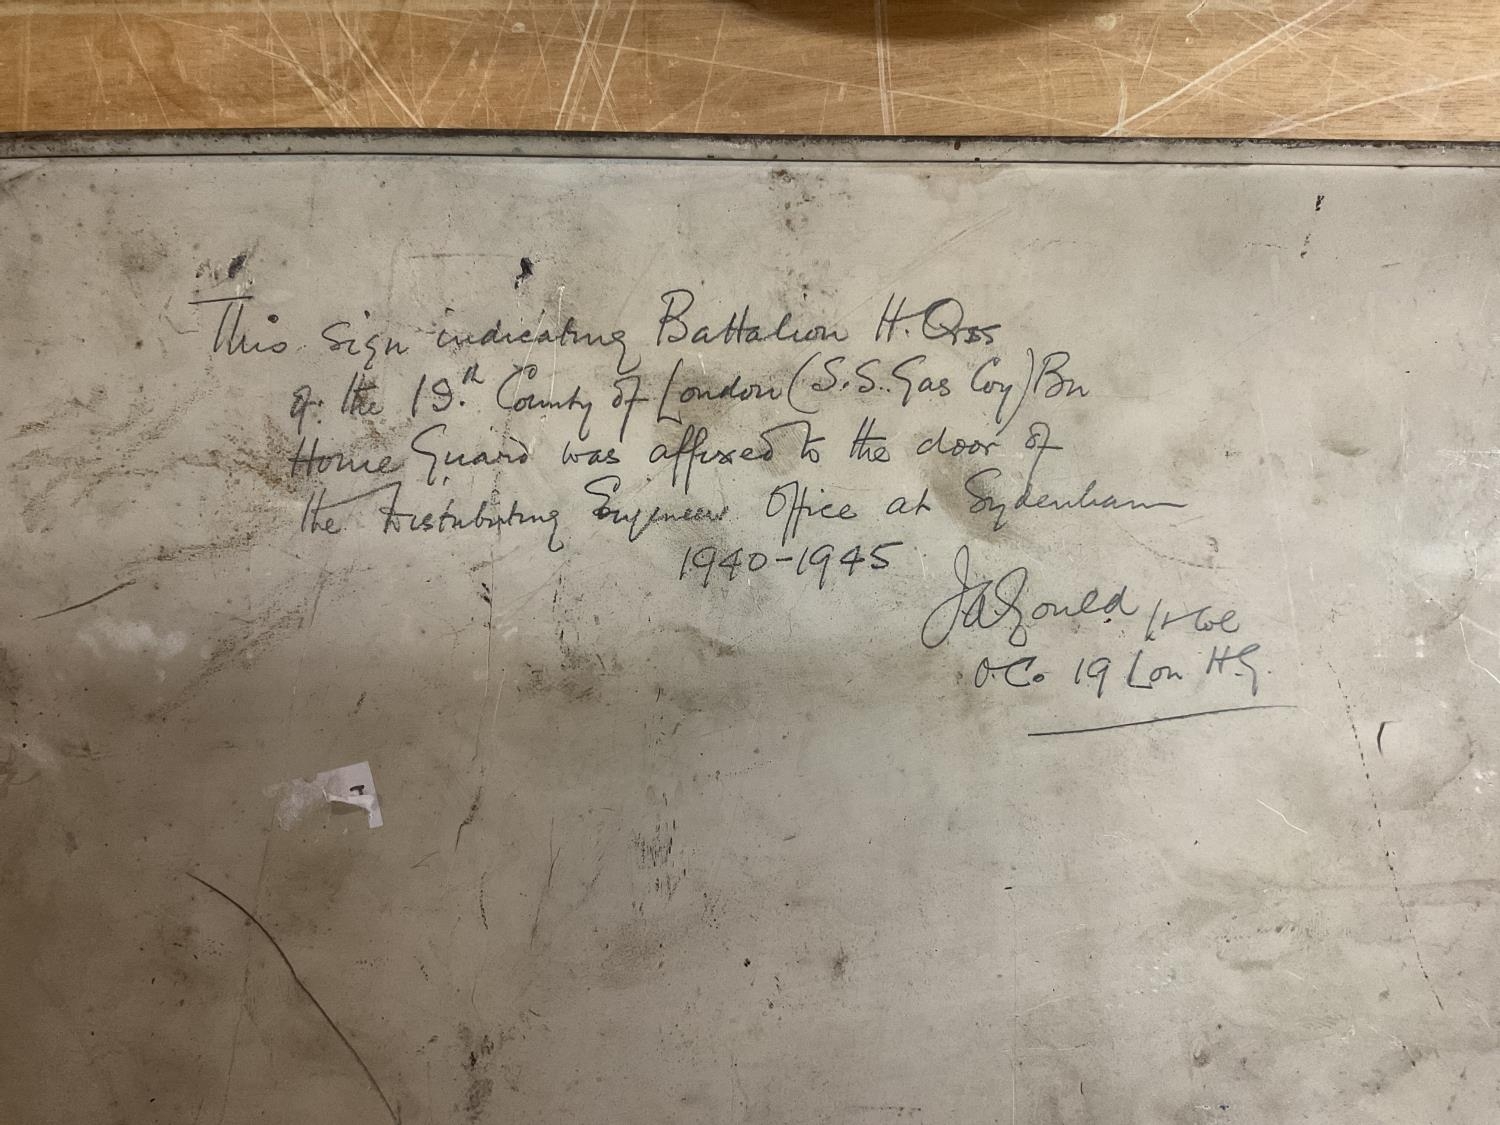 This sign indicating Battalion H. Qrs
of the 19th County of London (S.S. Gas Coy) Bn
Home Guard was affixed to the door of
the Distributing Engineers Office at Sydenham
1940-1945
JAGould Lt Col
O.C. 19 Lon H.G.